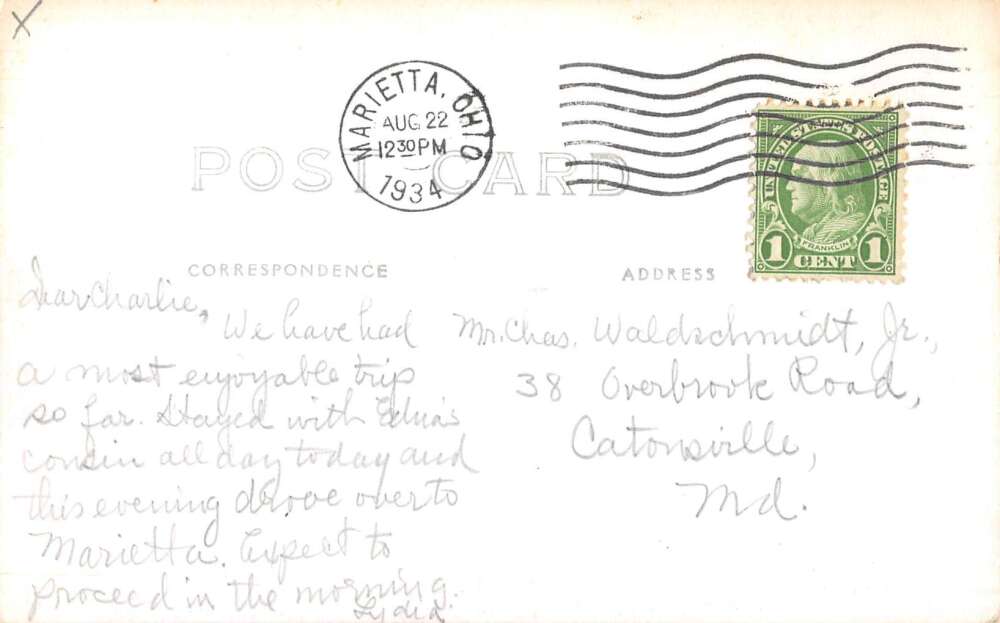 MARIETTA, OHIO
AUG 22
12 30 PM
1934
POST CARD
UNITED STATES POSTAGE
FRANKLIN
1 CENT 1
CORRESPONDENCE
ADDRESS
Dear Charlie,
We have had
a most enjoyable trip
so far. Stayed with Edna's
cousin all day today and
this evening drove over to
Marietta. Expect to
proceed in the morning.
Lydia
Mr. Chas. Waldschmidt, Jr.,
38 Overbrook Road,
Catonsville,
Md.